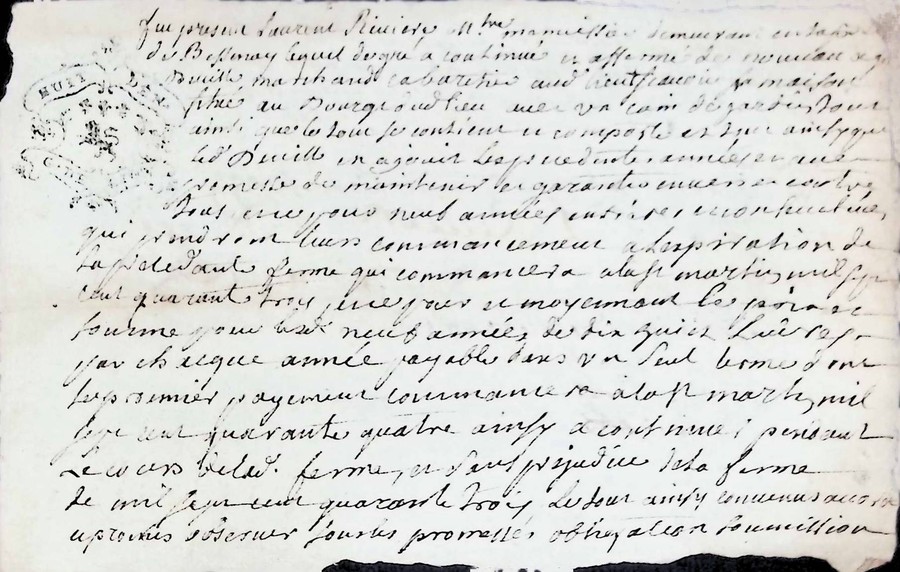 fut present Laurent Riviere Mtre menuissier demeurant en la
de Bessenay lequel de gre a continué et affermé de nouveau a
Deuill marchand cabaretier aud lieu scavoir sa maison
HUIT
situé au Bourg dud lieu avec un coin de jardin, tout
ainsi que le tout se contient et comporte et tout ainsy que
led Deuill en a jouit les precedentes années et avec
promesse de maintenir et garantir envers et contre
tous, et ce pour neuf années entieres
qui prendront leurs commancement a lexpiration de
la precedante ferme qui commancera a la st martin mil sept
cent quarante trois, et ce pour et moyennant le prix et
somme pour lesd. neuf années de dix huict Livres
par chacque année payable dans un seul terme dont
le premier payement commancera à la st martin mil
sept cent quarante quatre ainsy a continuer pendant
Le cours de lad. ferme, et sans prejudice de la ferme
de mil sept cent quarante trois Le tout ainsy convenus
et promis observer sous les promesses obligation soumission